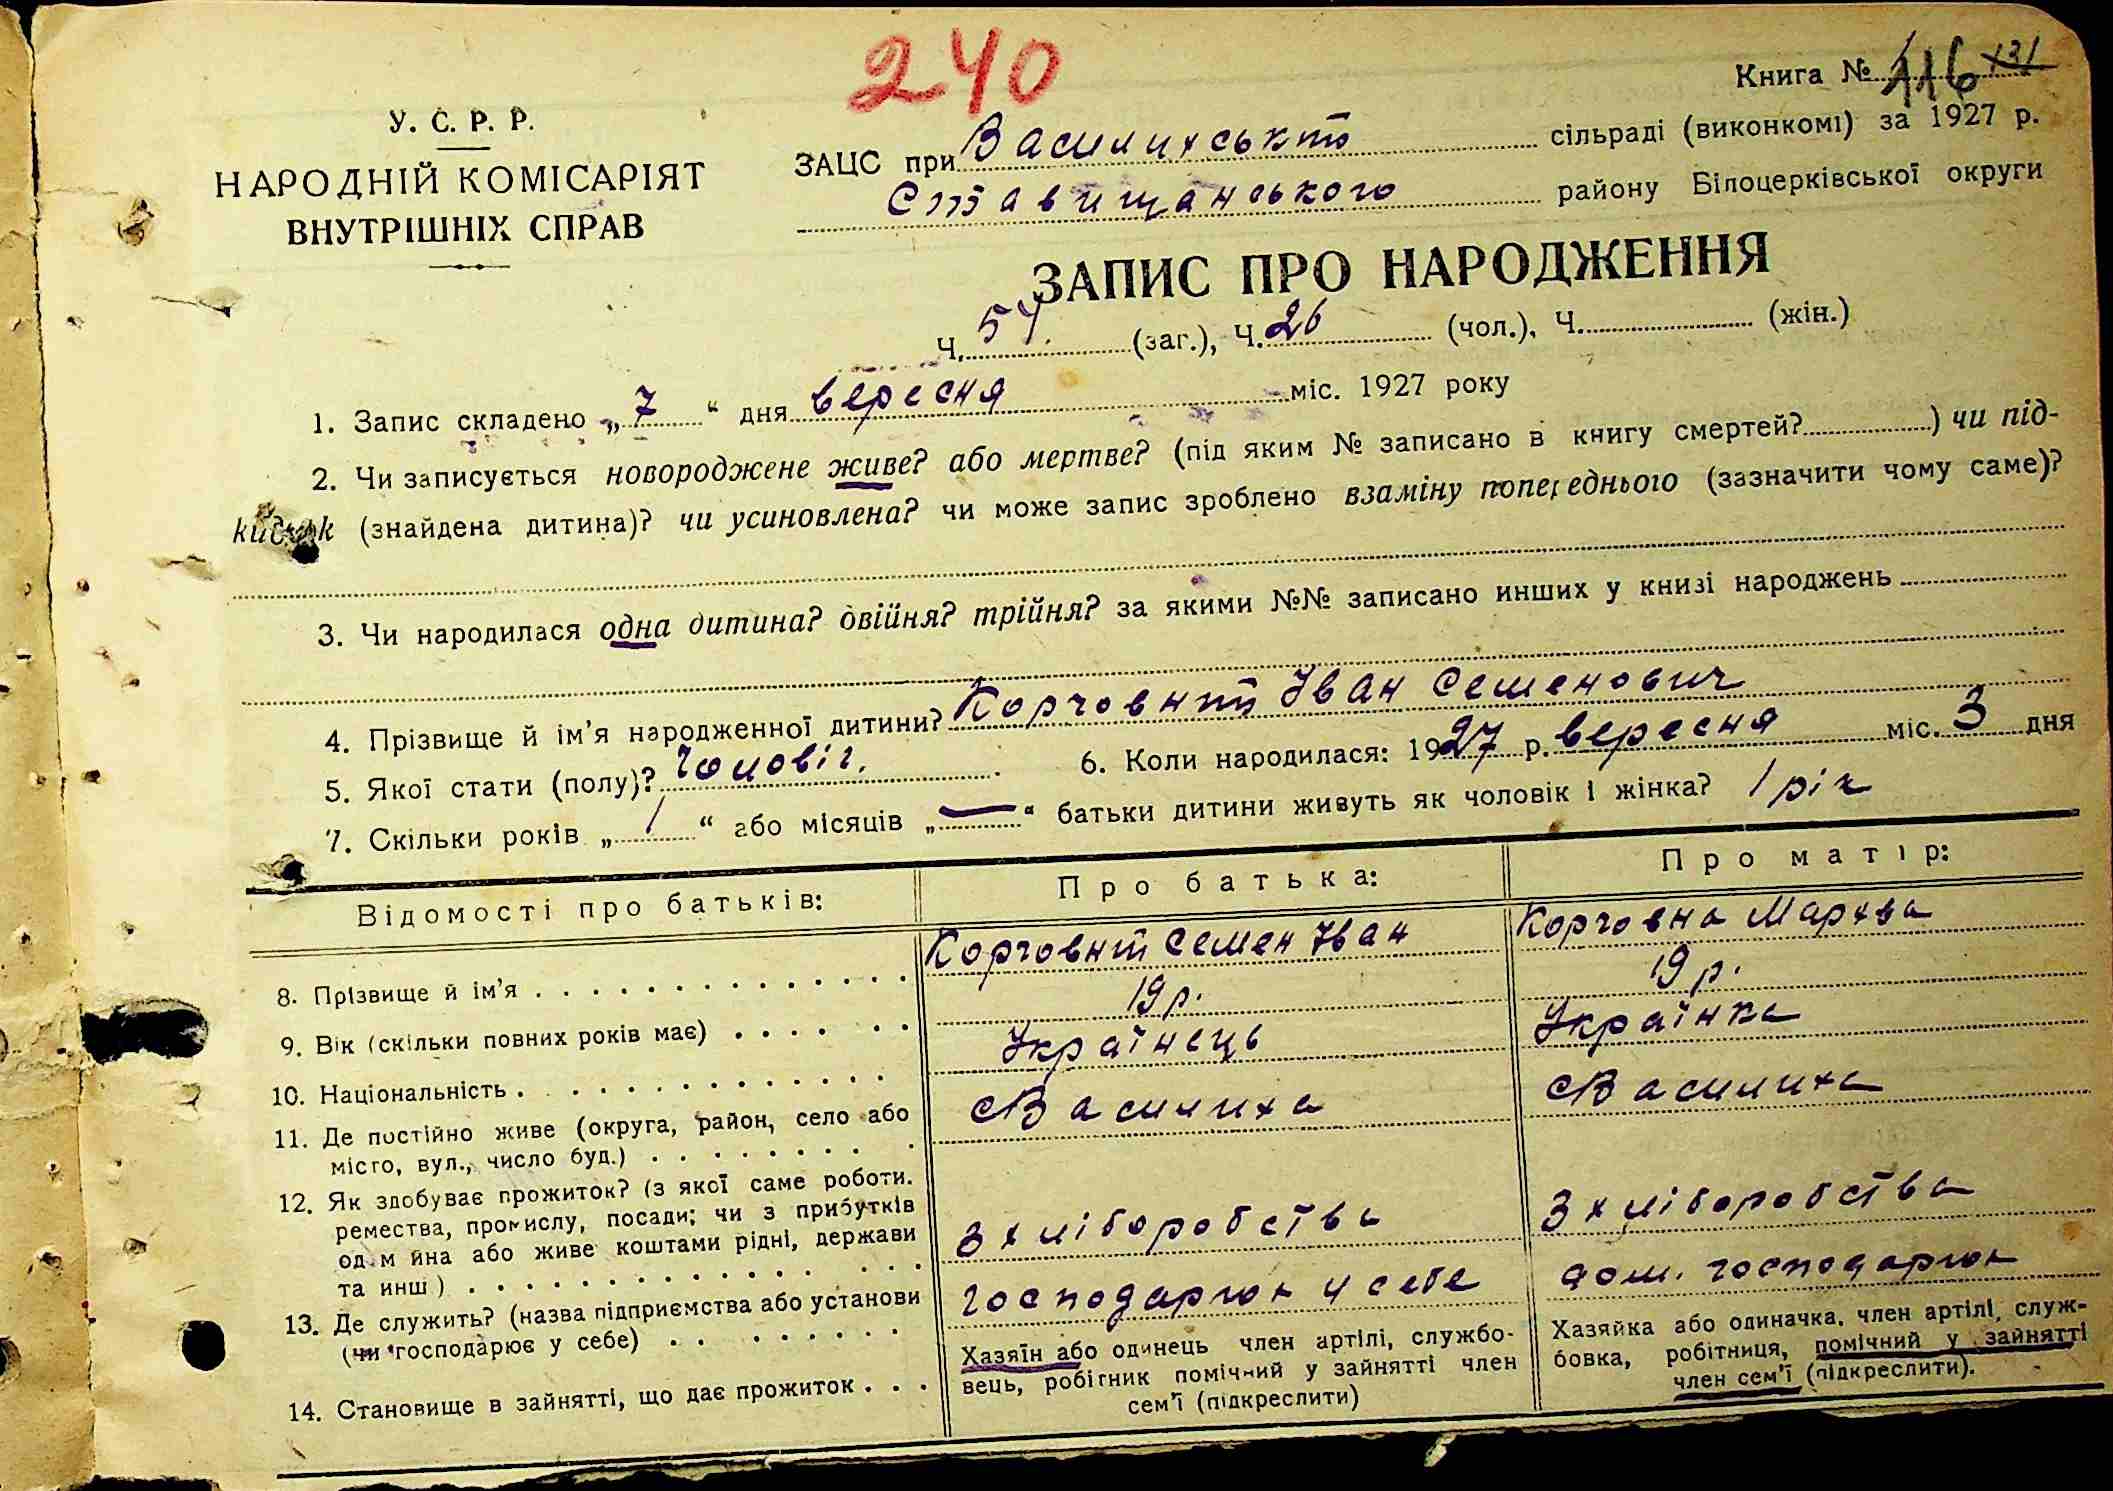 240
Книга № 116 131
У. С. Р. Р.
НАРОДНІЙ КОМІСАРІЯТ
ВНУТРІШНІХ СПРАВ
ЗАЦС при Василихській сільраді (виконкомі) за 1927 р.
Ставищанського району Білоцерківської округи
ЗАПИС ПРО НАРОДЖЕННЯ
Ч. 54 (заг.), Ч. 26 (чол.), Ч. (жін.)
1. Запис складено „7“ дня вересня міс. 1927 року
2. Чи записується новороджене живе? або мертве? (під яким № записано в книгу смертей?) чи під-
кидьок (знайдена дитина)? чи усиновлена? чи може запис зроблено взаміну попереднього (зазначити чому саме)?
3. Чи народилася одна дитина? двійня? трійня? за якими №№ записано инших у книзі народжень
4. Прізвище й ім'я народженної дитини? Корчовний Іван Семенович
5. Якої стати (полу)? Чоловіч. 6. Коли народилася: 1927 р. вересня міс. 3 дня
7. Скільки років „1“ або місяців „—“ батьки дитини живуть як чоловік і жінка? 1 рік
Відомості про батьків: Про батька: Про матір:
8. Прізвище й ім'я Корчовний Семен Іван Корчовна Мархва
9. Вік (скільки повних років має) 19 р. 19 р.
10. Національність Українець Українка
11. Де постійно живе (округа, район, село або
місто, вул., число буд.) с Василиха с Василиха
12. Як здобуває прожиток? (з якої саме роботи.
ремества, промислу, посади; чи з прибутків
од м йна або живе коштами рідні, держави
та инш) З хліборобства З хліборобства
13. Де служить? (назва підприємства або установи
(чи господарює у себе) господарюк у себе дом. господарюк
14. Становище в зайнятті, що дає прожиток
Хазяїн або одинець член артілі, службо-
вець, робітник помічний у зайнятті член
сем'ї (підкреслити)
Хазяйка або одиначка, член артілі, служ-
бовка, робітниця, помічний у зайнятті
член сем'ї (підкреслити).